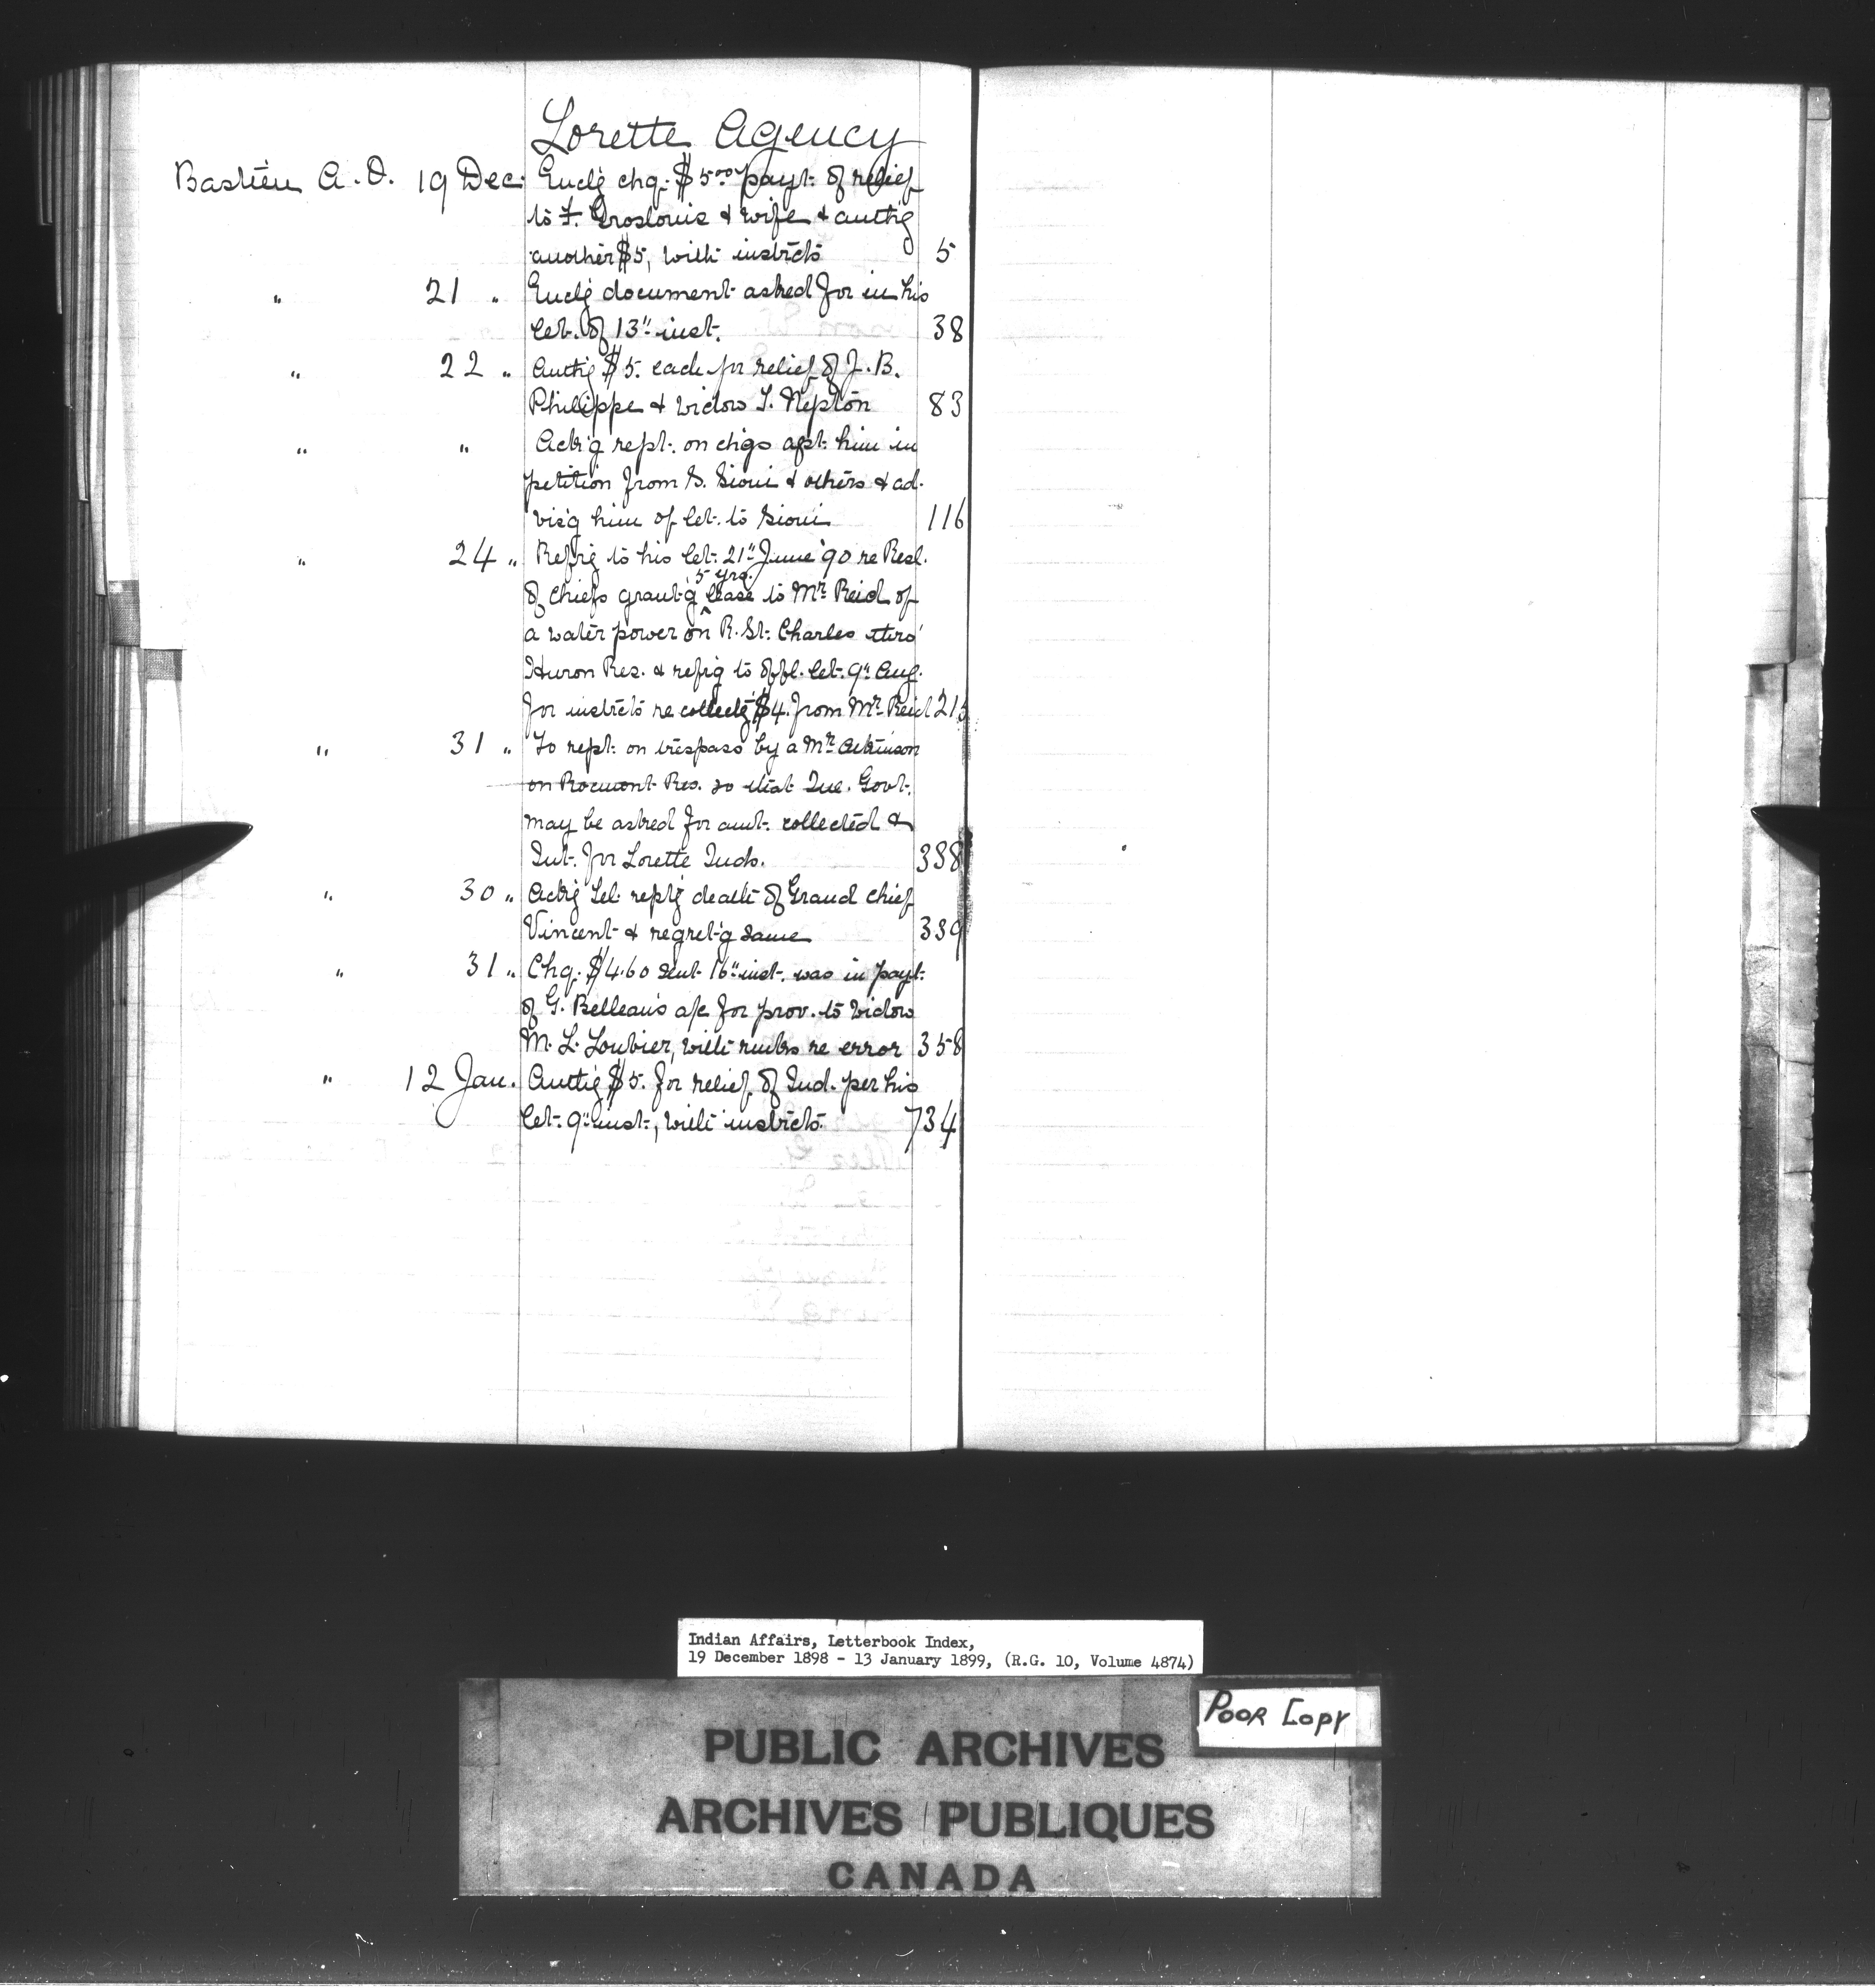 Lorette Agency
Bastien A. O. 19 Dec. Encl'g chq. $5.00 payt. of relief
to F. Groslouis & wife & auth'g
another $5, with instrcts 5
" 21 " Encl'g document asked for in his
let. of 13" inst. 38
" 22 " Auth'g $5. each for relief of J. B.
Philippe & widow T. Nepton 83
" " Ack'g rept. on chgs agst. him in
petition from S. Sioui & others & ad-
vis'g him of let. to Sioui 116
" 24 " Ref'g to his let. 21" June '90 re Resl.
5 yrs.
of chiefs grant'g lease to Mr. Reid of
a water power on R. St. Charles thro'
Huron Res. & ref'g to offl. let. 9" Aug.
for instrcts re collect'g $4. from Mr. Reid 215
" 31 " To rept. on trespass by a Mr. Atkinson
on Rocmont Res. so that Que. Govt.
may be asked for amt. collected &
Int. for Lorette Inds. 338
" 30 " Ack'g let. rept'g death of Grand Chief
Vincent & regret'g same 339
" 31 " Chq. $4.60 sent 16" inst. was in payt.
of G. Belleau's a/c for prov. to widow
M. L. Loubier, with rmks re error 358
" 12 Jan. Auth'g $5. for relief of Ind. per his
let. 9" inst., with instrcts. 734
Indian Affairs, Letterbook Index,
19 December 1898 - 13 January 1899, (R.G. 10, Volume 4874)
POOR COPY
PUBLIC ARCHIVES
ARCHIVES PUBLIQUES
CANADA